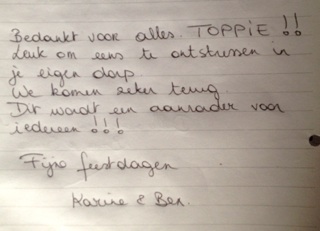 Bedankt voor alles. TOPPIE !!
Leuk om eens te ontstressen in
je eigen dorp.
We komen zeker terug.
Dit wordt een aanrader voor
iedereen !!!
Fijne feestdagen
Karine & Ben.